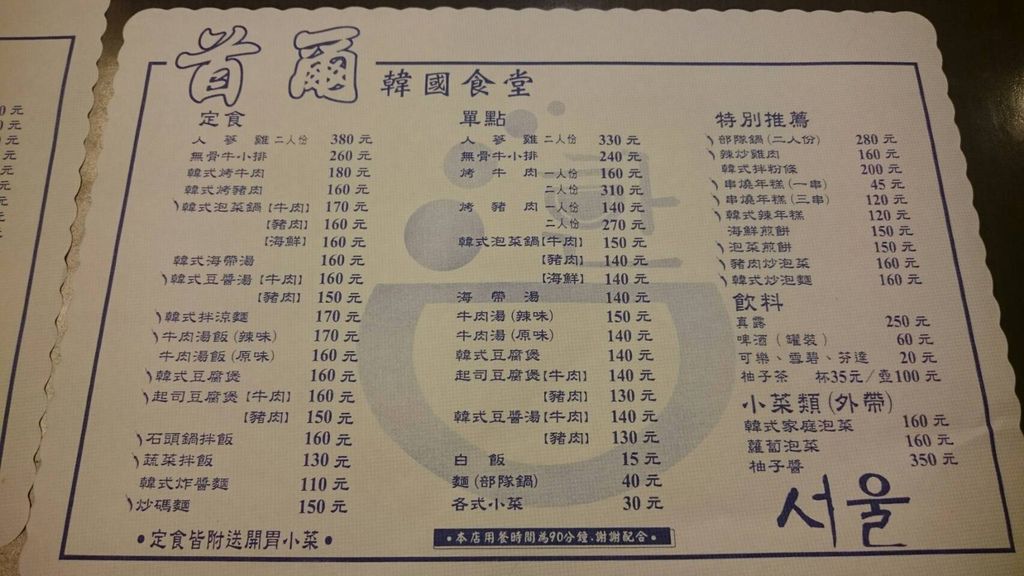 首爾 韓國食堂
定食
人蔘雞 二人份 380元
無骨牛小排 260元
韓式烤牛肉 180元
韓式烤豬肉 160元
韓式泡菜鍋【牛肉】 170元
【豬肉】 160元
【海鮮】 160元
韓式海帶湯 160元
韓式豆醬湯【牛肉】 160元
【豬肉】 150元
韓式拌涼麵 170元
牛肉湯飯(辣味) 170元
牛肉湯飯(原味) 160元
韓式豆腐煲 160元
起司豆腐煲【牛肉】 160元
【豬肉】 150元
石頭鍋拌飯 160元
蔬菜拌飯 130元
韓式炸醬麵 110元
炒碼麵 150元
•定食皆附送開胃小菜•
單點
人蔘雞 二人份 330元
無骨牛小排 240元
烤牛肉 一人份 160元
二人份 310元
烤豬肉 一人份 140元
二人份 270元
韓式泡菜鍋【牛肉】 150元
【豬肉】 140元
【海鮮】 140元
海帶湯 140元
牛肉湯(辣味) 150元
牛肉湯(原味) 140元
韓式豆腐煲 140元
起司豆腐煲【牛肉】 140元
【豬肉】 130元
韓式豆醬湯【牛肉】 140元
【豬肉】 130元
白飯 15元
麵(部隊鍋) 40元
各式小菜 30元
•本店用餐時間為90分鐘,謝謝配合•
特別推薦
部隊鍋(二人份) 280元
辣炒雞肉 160元
韓式拌粉條 200元
串燒年糕(一串) 45元
串燒年糕(三串) 120元
韓式辣年糕 120元
海鮮煎餅 150元
泡菜煎餅 150元
豬肉炒泡菜 160元
韓式炒泡麵 160元
飲料
真露 250元
啤酒(罐裝) 60元
可樂、雪碧、芬達 20元
柚子茶 杯35元/壺100元
小菜類(外帶)
韓式家庭泡菜 160元
蘿蔔泡菜 160元
柚子醬 350元
서울